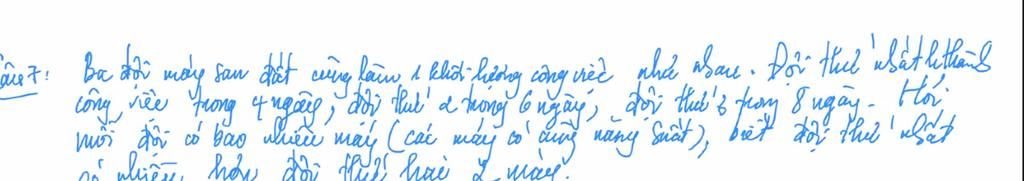 Câu 7: Ba đội máy san đất cùng làm 1 khối lượng công việc như nhau. Đội thứ nhất h thành
công việc trong 4 ngày, đội thứ 2 trong 6 ngày, đội thứ 3 trong 8 ngày. Hỏi
mỗi đội có bao nhiêu máy (các máy có cùng năng suất), biết đội thứ nhất
có nhiều hơn đội thứ hai 2 máy.